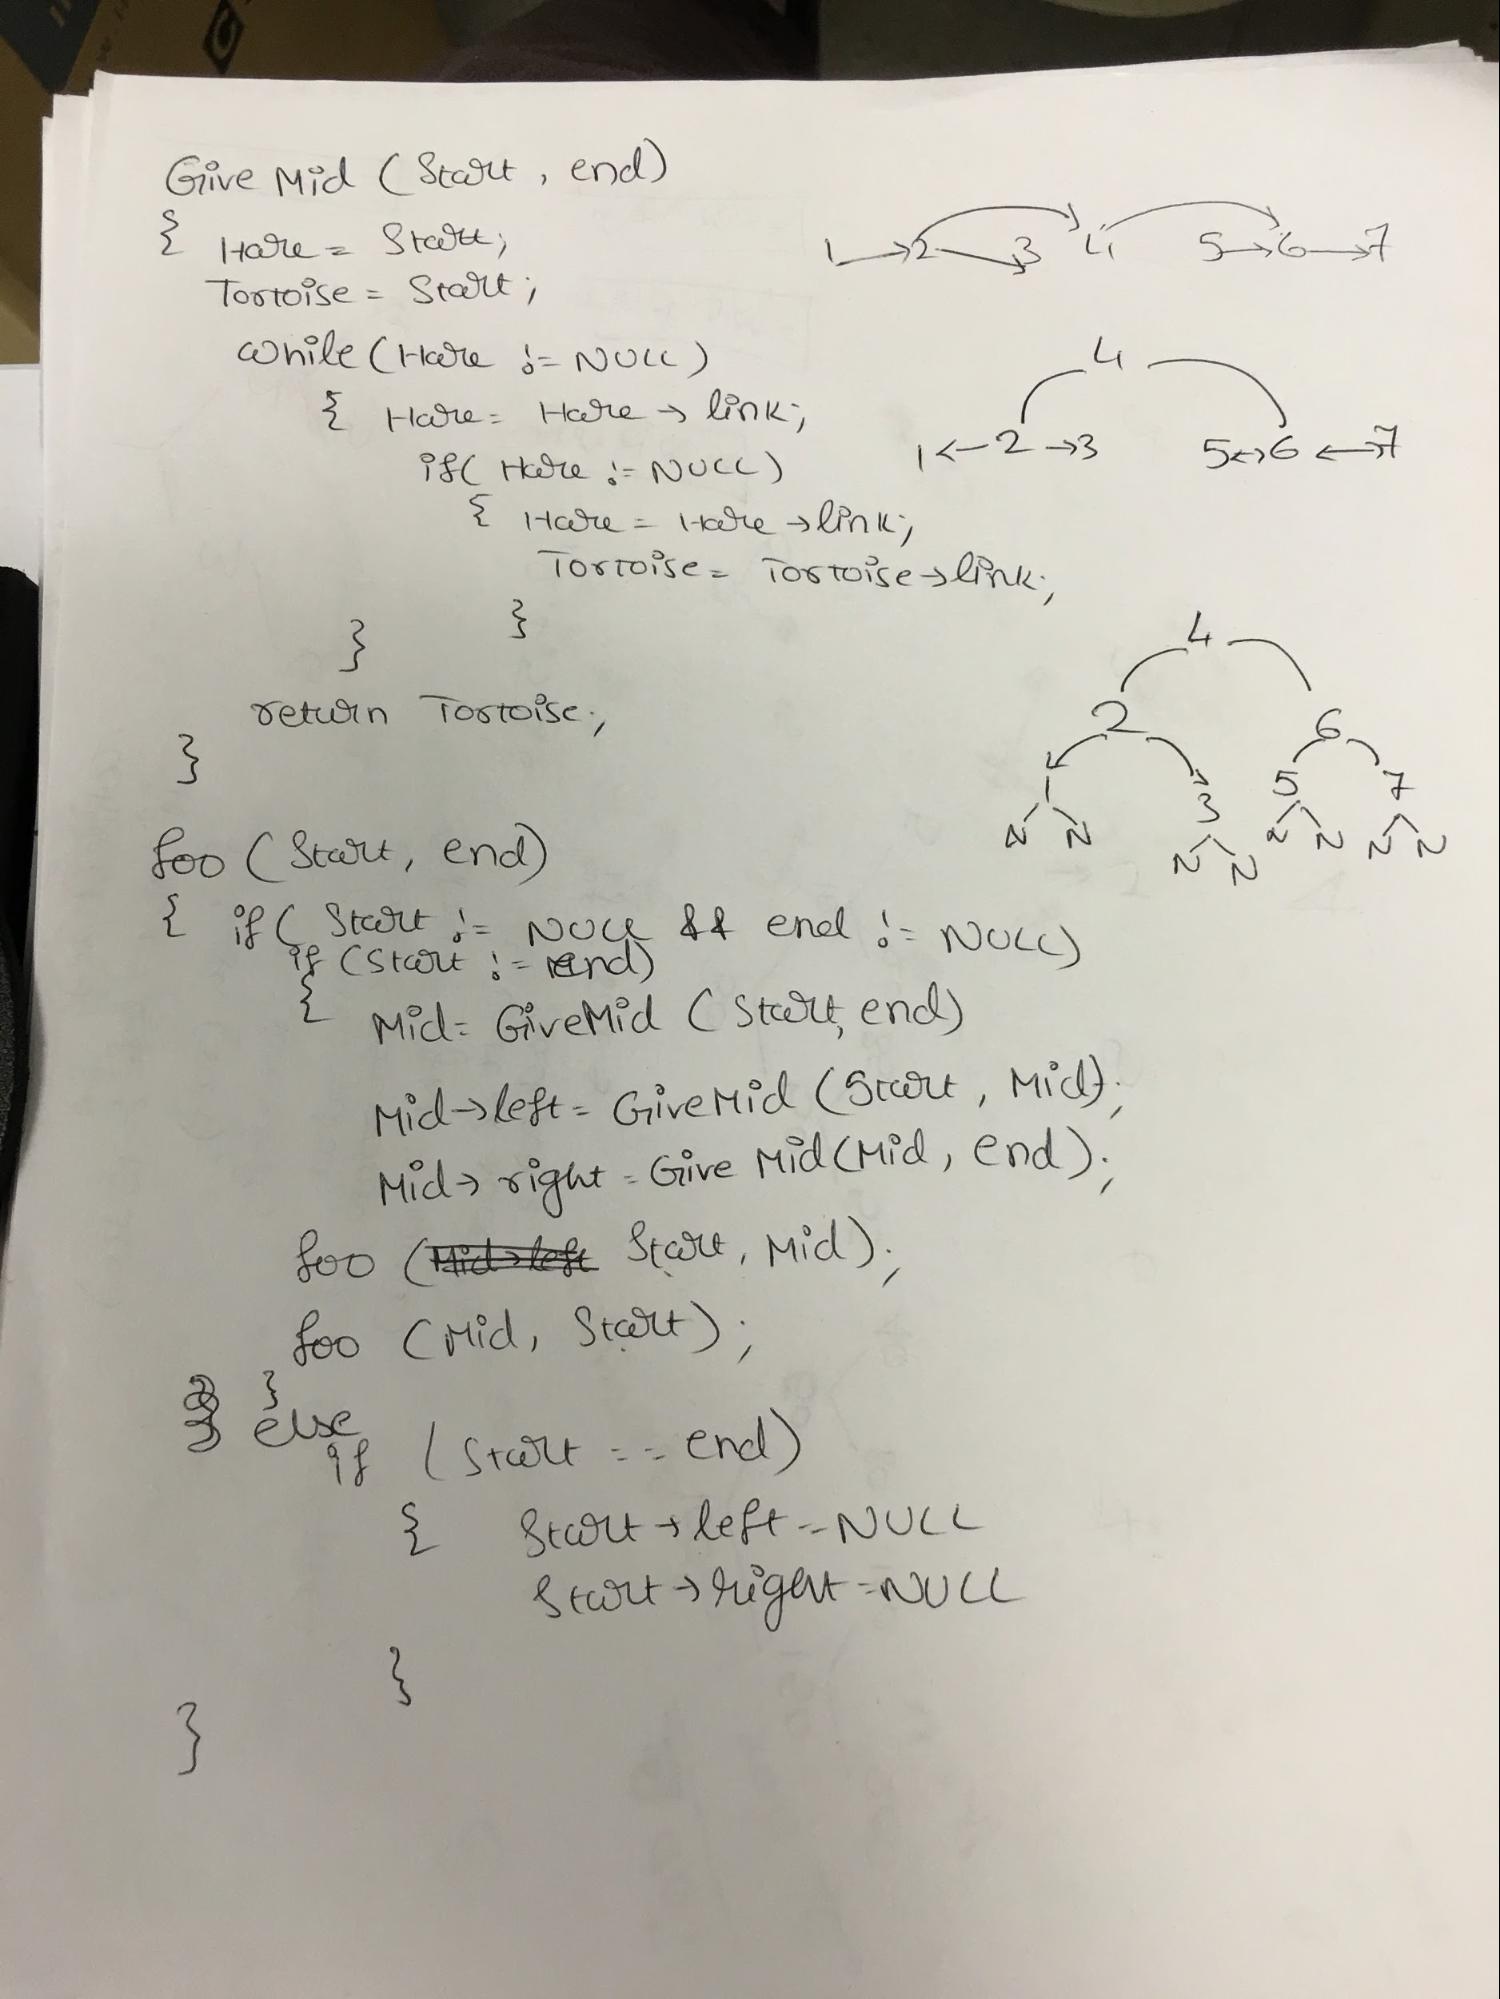 Give Mid (Start, end)
{ Hare = Start;
Tortoise = Start;
while (Hare != NULL)
{ Hare = Hare → link;
if( Hare != NULL)
{ Hare = Hare → link;
Tortoise = Tortoise → link;
}
}
return Tortoise;
}
1 → 2 → 3 4 5 → 6 → 7
4
1 ← 2 → 3 5 ↔ 6 ↔ 7
4
2 6
1 3 5 7
N N N N N N N N
foo (Start, end)
{ if( Start != NULL && end != NULL)
if (Start != end)
{ Mid = GiveMid (Start, end)
Mid → left = GiveMid (Start, Mid);
Mid → right = Give Mid (Mid, end);
foo (Mid → left Start, Mid);
foo (Mid, Start);
}
} else
if (Start == end)
{ Start → left = NULL
Start → right = NULL
}
}